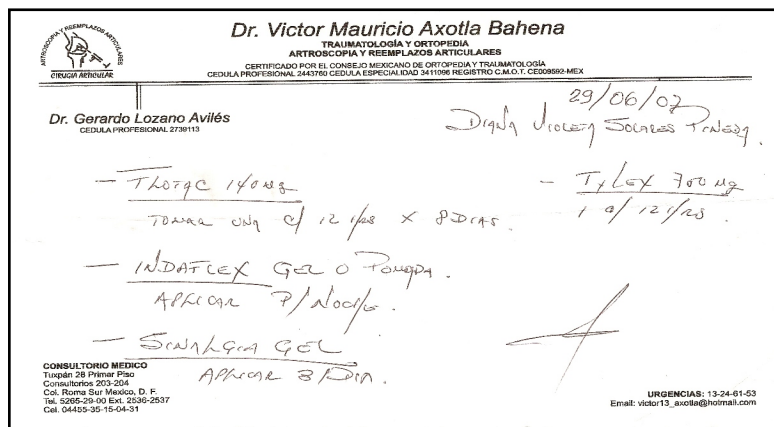 ARTROSCOPIA Y REEMPLAZOS ARTICULARES
CIRUGIA ARTICULAR
Dr. Victor Mauricio Axotla Bahena
TRAUMATOLOGÍA Y ORTOPEDIA
ARTROSCOPIA Y REEMPLAZOS ARTICULARES
CERTIFICADO POR EL CONSEJO MEXICANO DE ORTOPEDIA Y TRAUMATOLOGÍA
CEDULA PROFESIONAL 2443760 CEDULA ESPECIALIDAD 3411096 REGISTRO C.M.O.T. CE009592-MEX
29/06/07
Dr. Gerardo Lozano Avilés
CEDULA PROFESIONAL 2739113
DIANA VIOLETA SOLARES PINEDA.
- FLOTAC 140 mg
TOMAR UNA c/ 12 Hrs X 8 DIAS.
- TYLEX 700 mg
1 c/ 12 Hrs.
- INDAFLEX GEL O POMADA.
APLICAR P/Noche.
- SINALGIA GEL
APLICAR 3/DIA.
CONSULTORIO MEDICO
Tuxpán 28 Primer Piso
Consultorios 203-204
Col. Roma Sur Mexico, D. F.
Tel. 5265-29-00 Ext. 2536-2537
Cel. 04455-35-15-04-31
URGENCIAS: 13-24-61-53
Email: victor13_axotla@hotmail.com